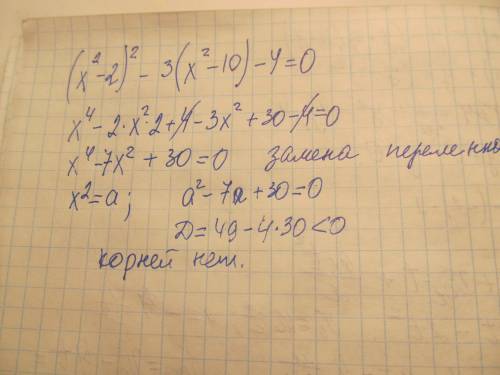 (x²-2)² - 3(x²-10) - 4 = 0
x⁴ - 2·x²·2 + 4 - 3x² + 30 - 4 = 0
x⁴ - 7x² + 30 = 0 замена переменно
x² = a; a² - 7a + 30 = 0
D = 49 - 4·30 < 0
корней нет.